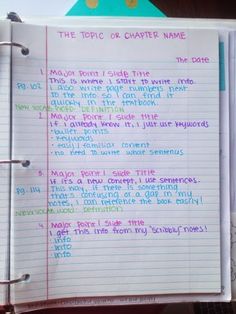 THE TOPIC OR CHAPTER NAME
The Date
1. Major Point / Slide Title
This is where I start to write info.
Pg. 102 I also write page numbers next
to the info so I can find it
quickly in the textbook.
NEW VOCAB WORD: DEFINITION
2. Major Point / Slide Title
If I already know it, I just use keywords
• bullet points
• keywords
• easy / familiar content
• no need to write whole sentences
3. Major Point / Slide Title
If it's a new concept, I use sentences.
Pg. 114 This way, if there is something
that's confusing or a gap in my
notes, I can reference the book easily!
NEW VOCAB WORD: Definition
4. Major Point / Slide title
I get this info from my "scribbly" notes!
• info
• info
• info